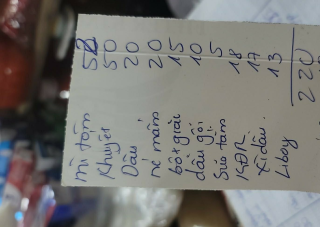 mì tôm 52
Khuyết 50
Dầu 20
né mắm 20
bột giặt 15
dầu gội 10
Sữa tắm 5
KĐR 18
xì dầu 17
Liboy 13
220